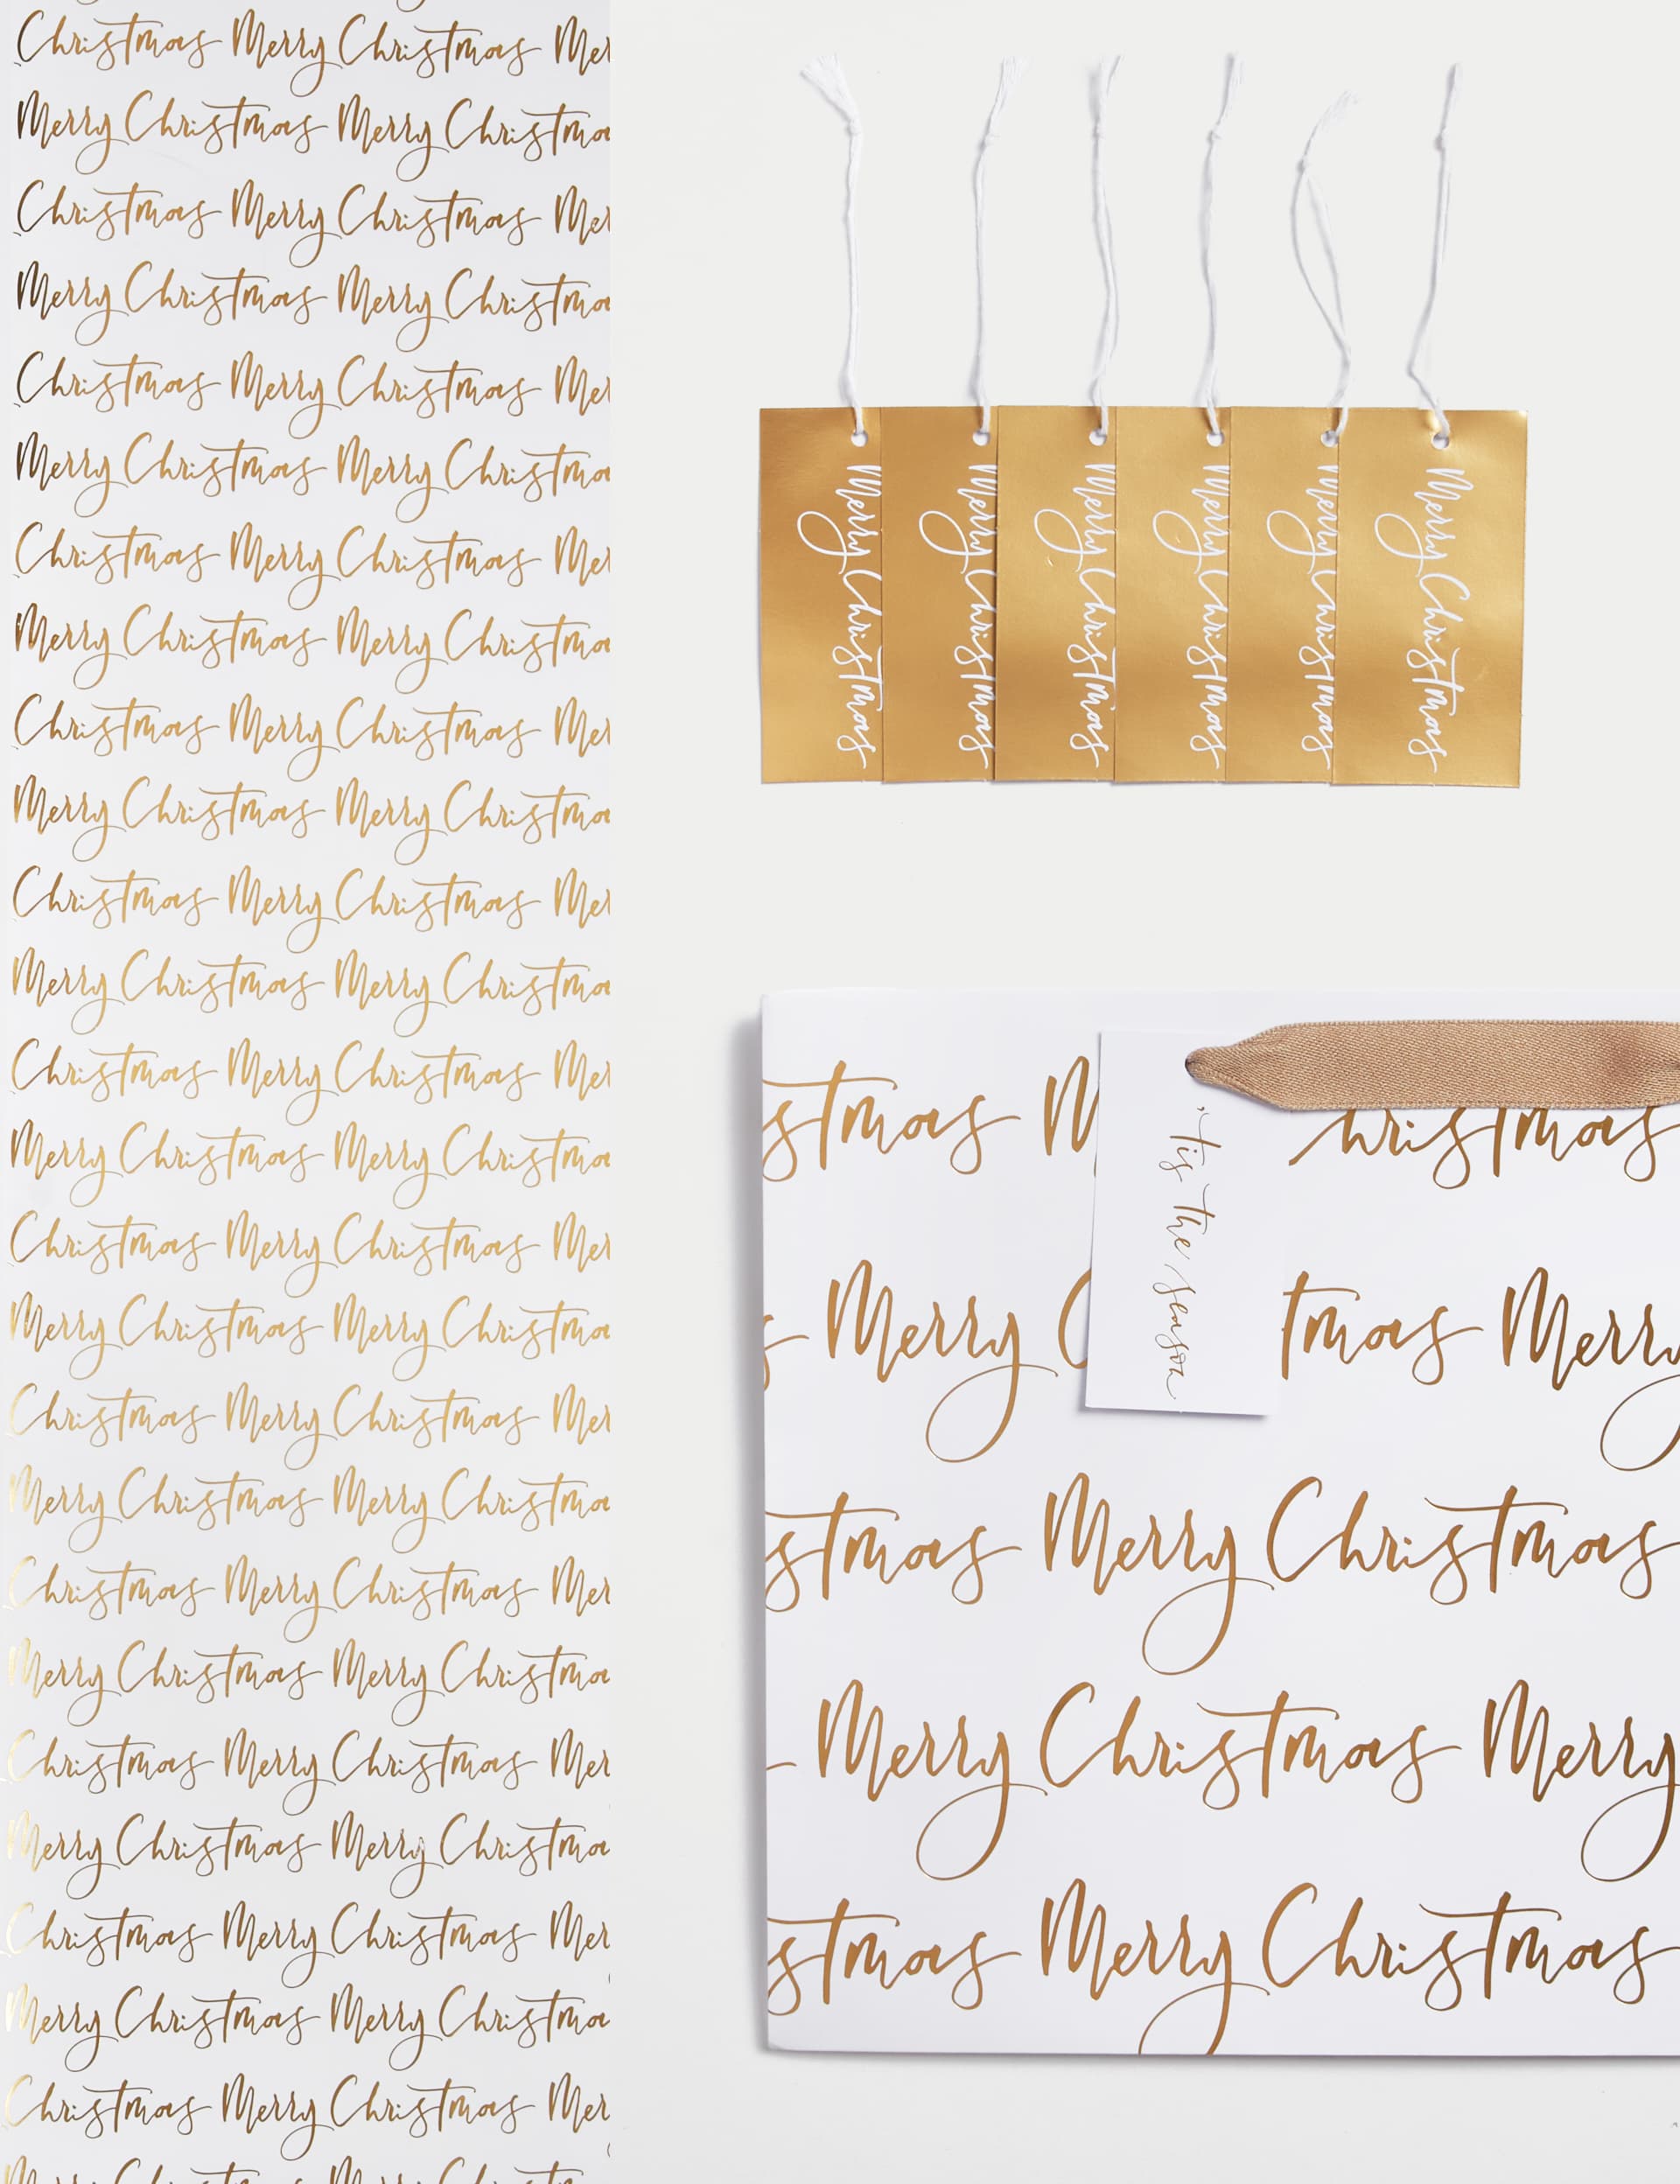 Christmas Merry Christmas Mer
Merry Christmas Merry Christma
Christmas Merry Christmas Mer
Merry Christmas Merry Christma
Christmas Merry Christmas Mer
Merry Christmas Merry Christma
Christmas Merry Christmas Mer
Merry Christmas Merry Christma
Christmas Merry Christmas Mer
Merry Christmas Merry Christma
Christmas Merry Christmas Mer
Merry Christmas Merry Christma
Christmas Merry Christmas Mer
Merry Christmas Merry Christma
Christmas Merry Christmas Mer
Merry Christmas Merry Christma
Christmas Merry Christmas Mer
Merry Christmas Merry Christma
Christmas Merry Christmas Mer
Merry Christmas Merry Christma
Christmas Merry Christmas Mer
Merry Christmas Merry Christma
Christmas Merry Christmas Mer
Merry Christmas Merry Christma
Christmas Merry Christmas Mer
Merry Christmas Merry Christm
Merry Christmas
Merry Christmas
Merry Christmas
Merry Christmas
Merry Christmas
Merry Christmas
stmas M hristmas
'tis the season
s Merry C tmas Merry
stmas Merry Christmas
Merry Christmas Merry
stmas Merry Christmas